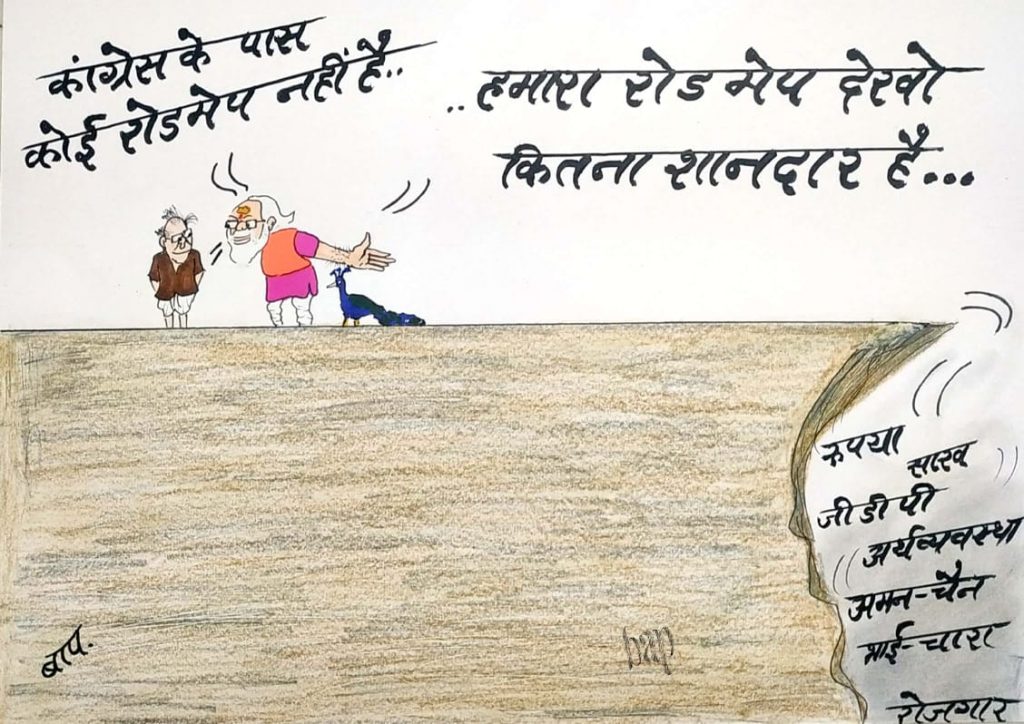 कांग्रेस के पास
कोई रोडमेप नहीं है..
..हमारा रोडमेप देखो
कितना शानदार है...
रुपया
साख
जी डी पी
अर्थव्यवस्था
अमन-चैन
भाई-चारा
रोजगार
बाप.
bap